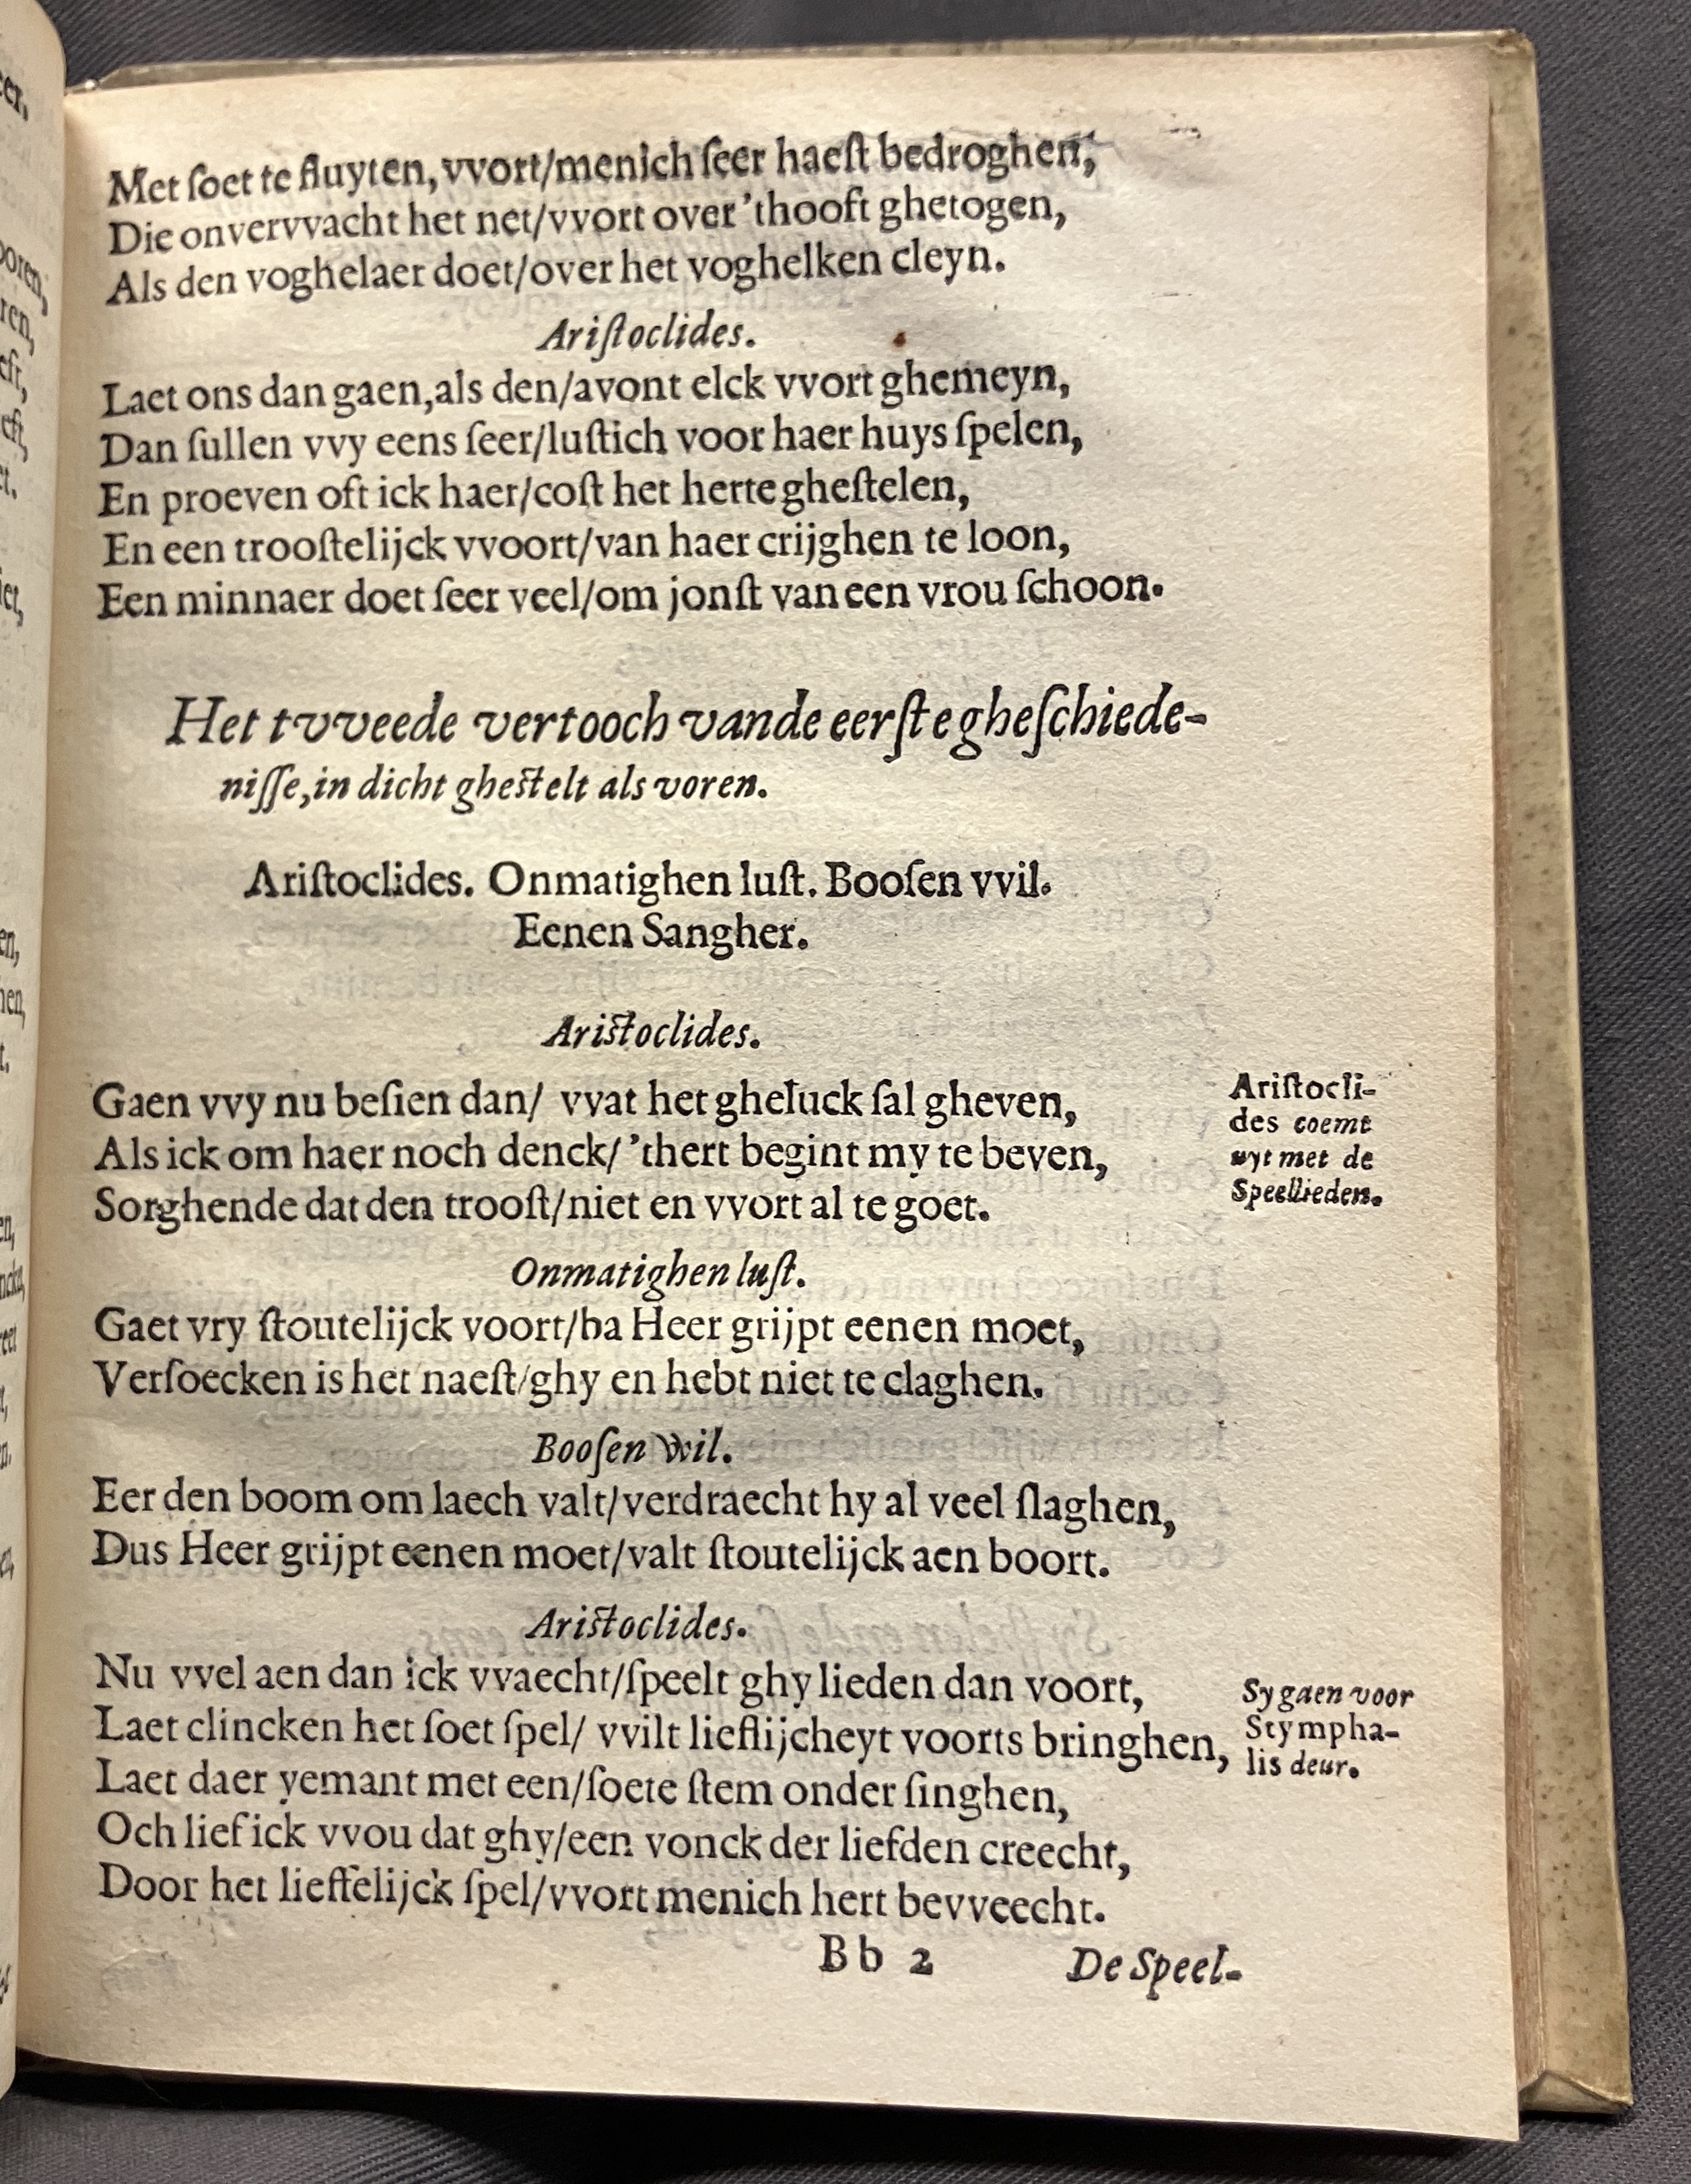 Met ſoet te fluyten, vvort/menich ſeer haeſt bedroghen,
Die onvervvacht het net/vvort over 'thooft ghetogen,
Als den voghelaer doet/over het voghelken cleyn.
Ariſtoclides.
Laet ons dan gaen,als den/avont elck vvort ghemeyn,
Dan ſullen vvy eens ſeer/luſtich voor haer huys ſpelen,
En proeven oft ick haer/coſt het herte gheſtelen,
En een trooſtelijck vvoort/van haer crijghen te loon,
Een minnaer doet ſeer veel/om jonſt van een vrou ſchoon.
Het tvveede vertooch vande eerſte gheſchiede-
niſſe,in dicht gheſtelt als voren.
Ariſtoclides. Onmatighen luſt. Booſen vvil.
Eenen Sangher.
Ariſtoclides.
Gaen vvy nu beſien dan/ vvat het gheluck ſal gheven,
Als ick om haer noch denck/ 'thert begint my te beven,
Sorghende dat den trooſt/niet en vvort al te goet.
Ariſtocli-
des coemt
uyt met de
Speellieden.
Onmatighen luſt.
Gaet vry ſtoutelijck voort/ba Heer grijpt eenen moet,
Verſoecken is het naeſt/ghy en hebt niet te claghen.
Booſen Wil.
Eer den boom om laech valt/verdraecht hy al veel ſlaghen,
Dus Heer grijpt eenen moet/valt ſtoutelijck aen boort.
Ariſtoclides.
Nu vvel aen dan ick vvaecht/ſpeelt ghy lieden dan voort,
Laet clincken het ſoet ſpel/ vvilt lieflijcheyt voorts bringhen,
Laet daer yemant met een/ſoete ſtem onder ſinghen,
Och lief ick vvou dat ghy/een vonck der liefden creecht,
Door het lieffelijck ſpel/vvort menich hert bevveecht.
Sy gaen voor
Stympha-
lis deur.
Bb 2 De Speel-